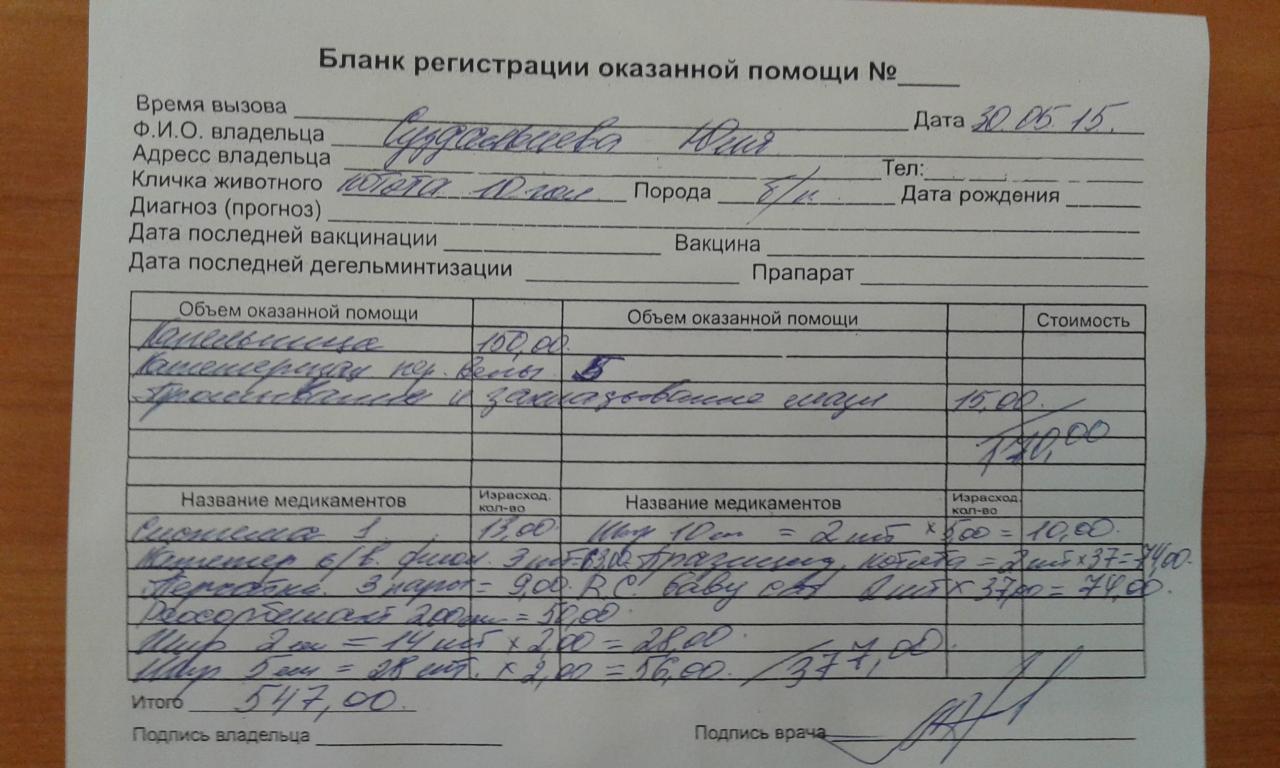 Бланк регистрации оказанной помощи №____
Время вызова Дата 30.05.15.
Ф.И.О. владельца Суздальцева Юлия
Адресс владельца Тел:
Кличка животного котята 10 гол Порода б/п Дата рождения
Диагноз (прогноз)
Дата последней вакцинации Вакцина
Дата последней дегельминтизации Прапарат
Объем оказанной помощи Объем оказанной помощи Стоимость
Капельница 150,00.
Катетеризац пер. вены 5
Промывание и закладывание мази 15,00.
170,00
Название медикаментов Израсход. кол-во Название медикаментов Израсход. кол-во
Система 1 13,00. Шпр 10 = 2 шт × 5,00 = 10,00.
Катетер в/в. фиол. 3 шт = 63,00. Празицид котята = 2 шт × 37 = 74,00.
Перчатки 3 пары = 9,00. R.C. 2 шт × 37,00 = 74,00.
Реосорбилакт 200 = 50,00
Шпр 2 = 14 шт × 2,00 = 28,00.
Шпр 5 = 28 шт. × 2,00 = 56,00. 377,00.
Итого 547,00.
Подпись владельца Подпись врача